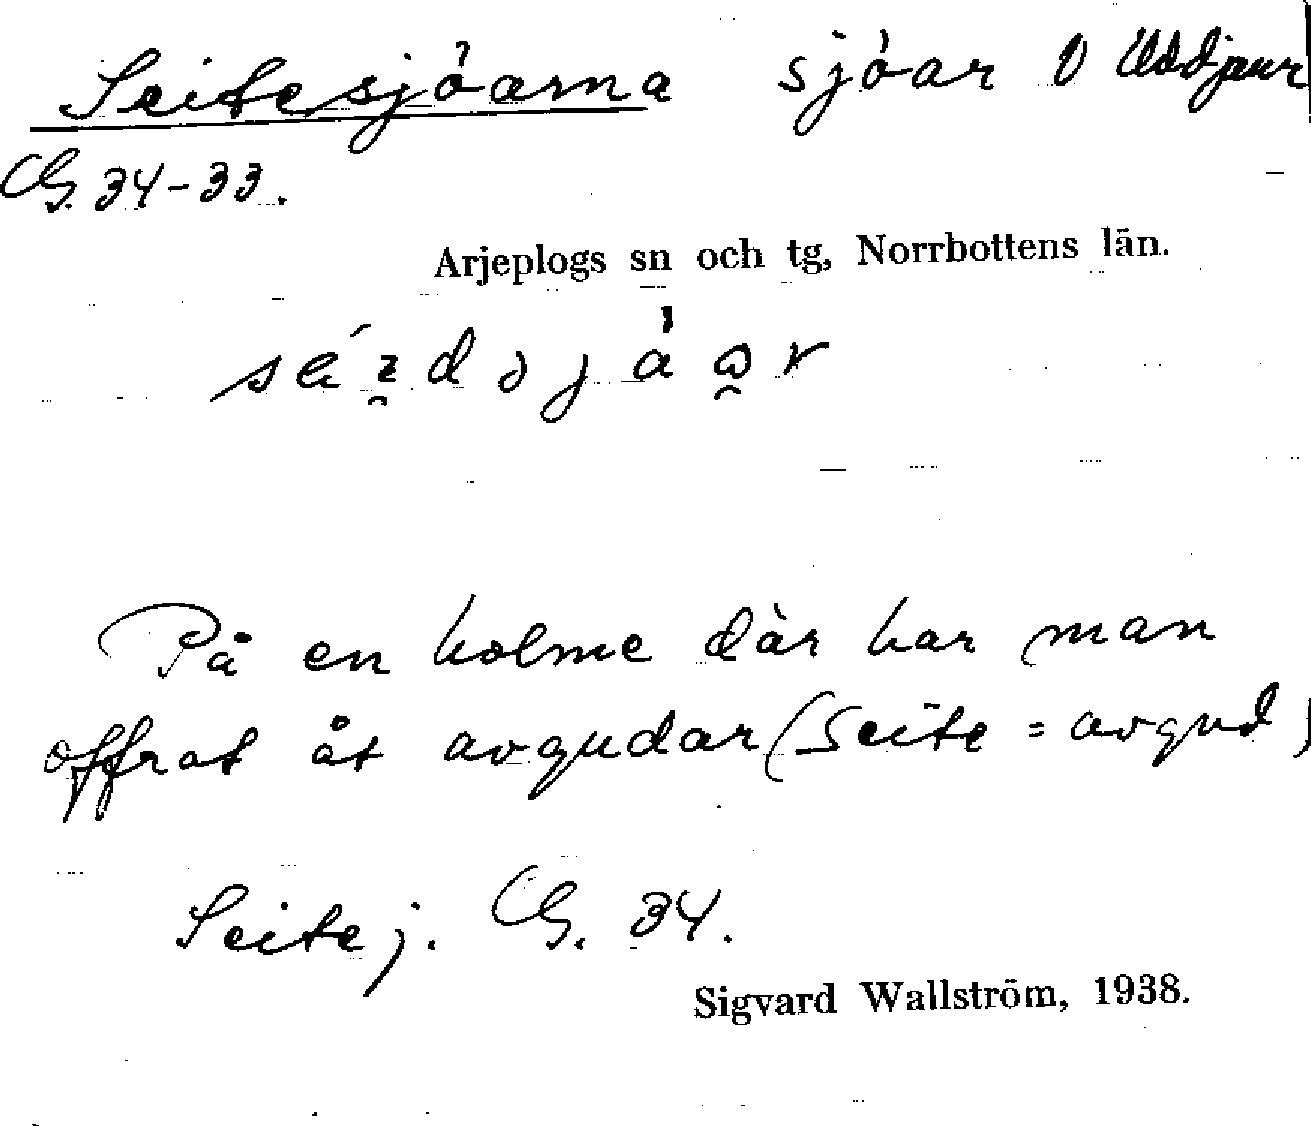 Seitesjöarna sjöar O Uddjaur
G. 34-33.
Arjeplogs sn och tg, Norrbottens län.
På en holme där har man
offrat åt avgudar (Seite = avgud)
Seitej. G. 34.
Sigvard Wallström, 1938.